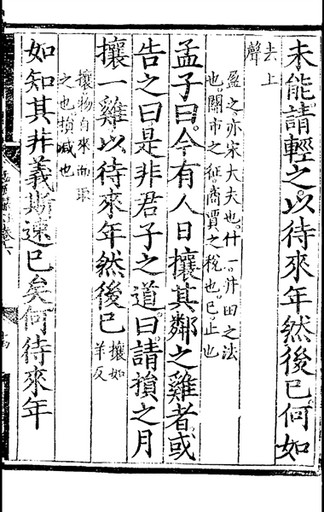 未能請輕之以待來年然後已何如
去上
聲
盈之亦宋大夫也什一井田之法
也關市之征商賈之稅也已止也
孟子曰今有人日攘其鄰之雞者或
告之曰是非君子之道曰請損之月
攘一雞以待來年然後已攘如
羊反
攘物自來而取
之也損減也
如知其非義斯速已矣何待來年